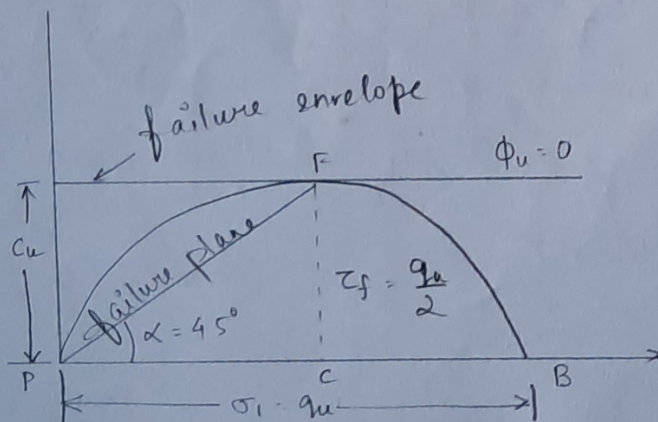 failure envelope
F
ϕu = 0
Cu
failure plane
τf = qu/2
α = 45°
P
C
B
σ1 = qu